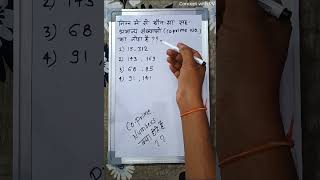 Concept with GV
निम्न में से कौन सा सह-
अभाज्य संख्याओं (coprime no.)
का जोड़ा है ? :
1) 15, 312
2) 143, 169
3) 68, 85
4) 91, 141
Co Prime
Numbers
क्या होते हैं
??